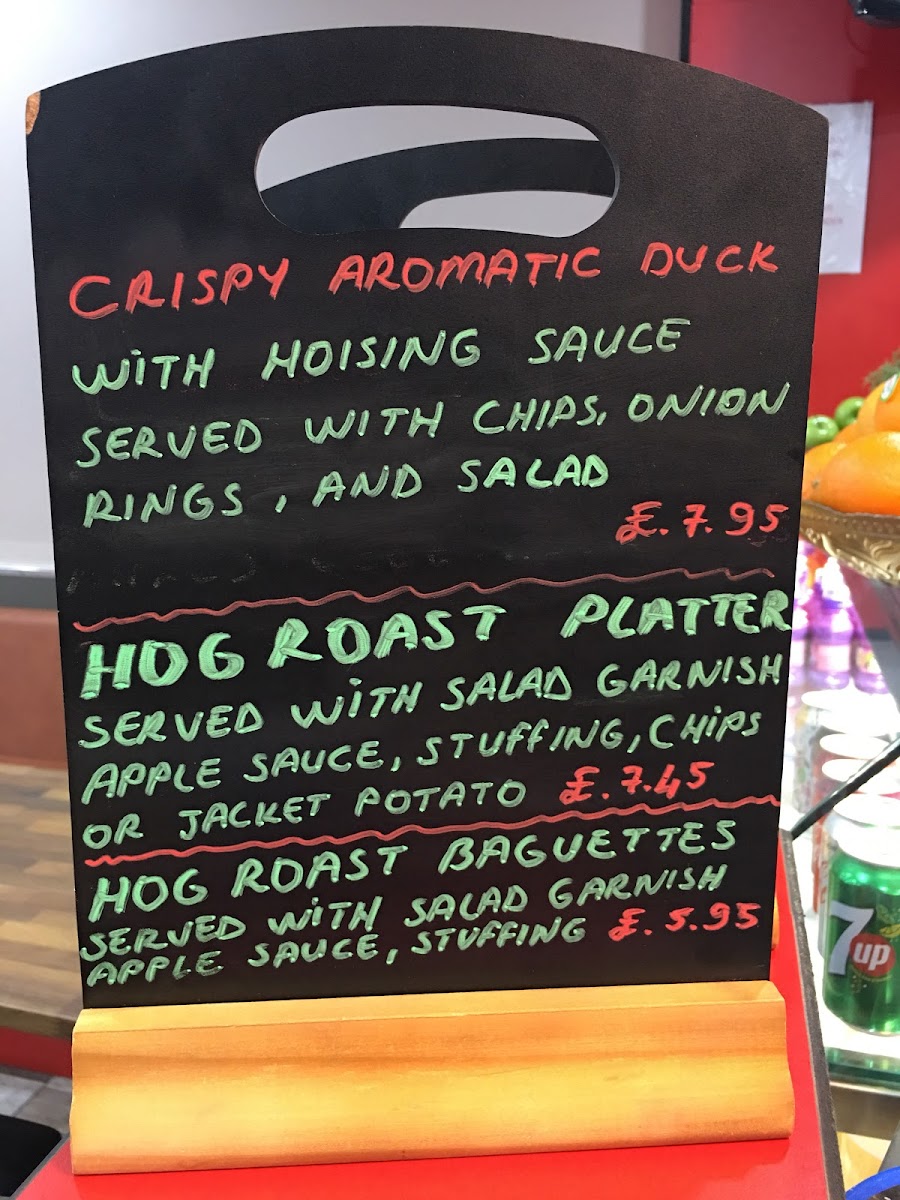 CRISPY AROMATIC DUCK
WITH HOISING SAUCE
SERVED WITH CHIPS, ONION
RINGS, AND SALAD
£.7.95
HOG ROAST PLATTER
SERVED WITH SALAD GARNISH
APPLE SAUCE, STUFFING, CHIPS
OR JACKET POTATO £.7.45
HOG ROAST BAGUETTES
SERVED WITH SALAD GARNISH
APPLE SAUCE, STUFFING £.5.95
7up